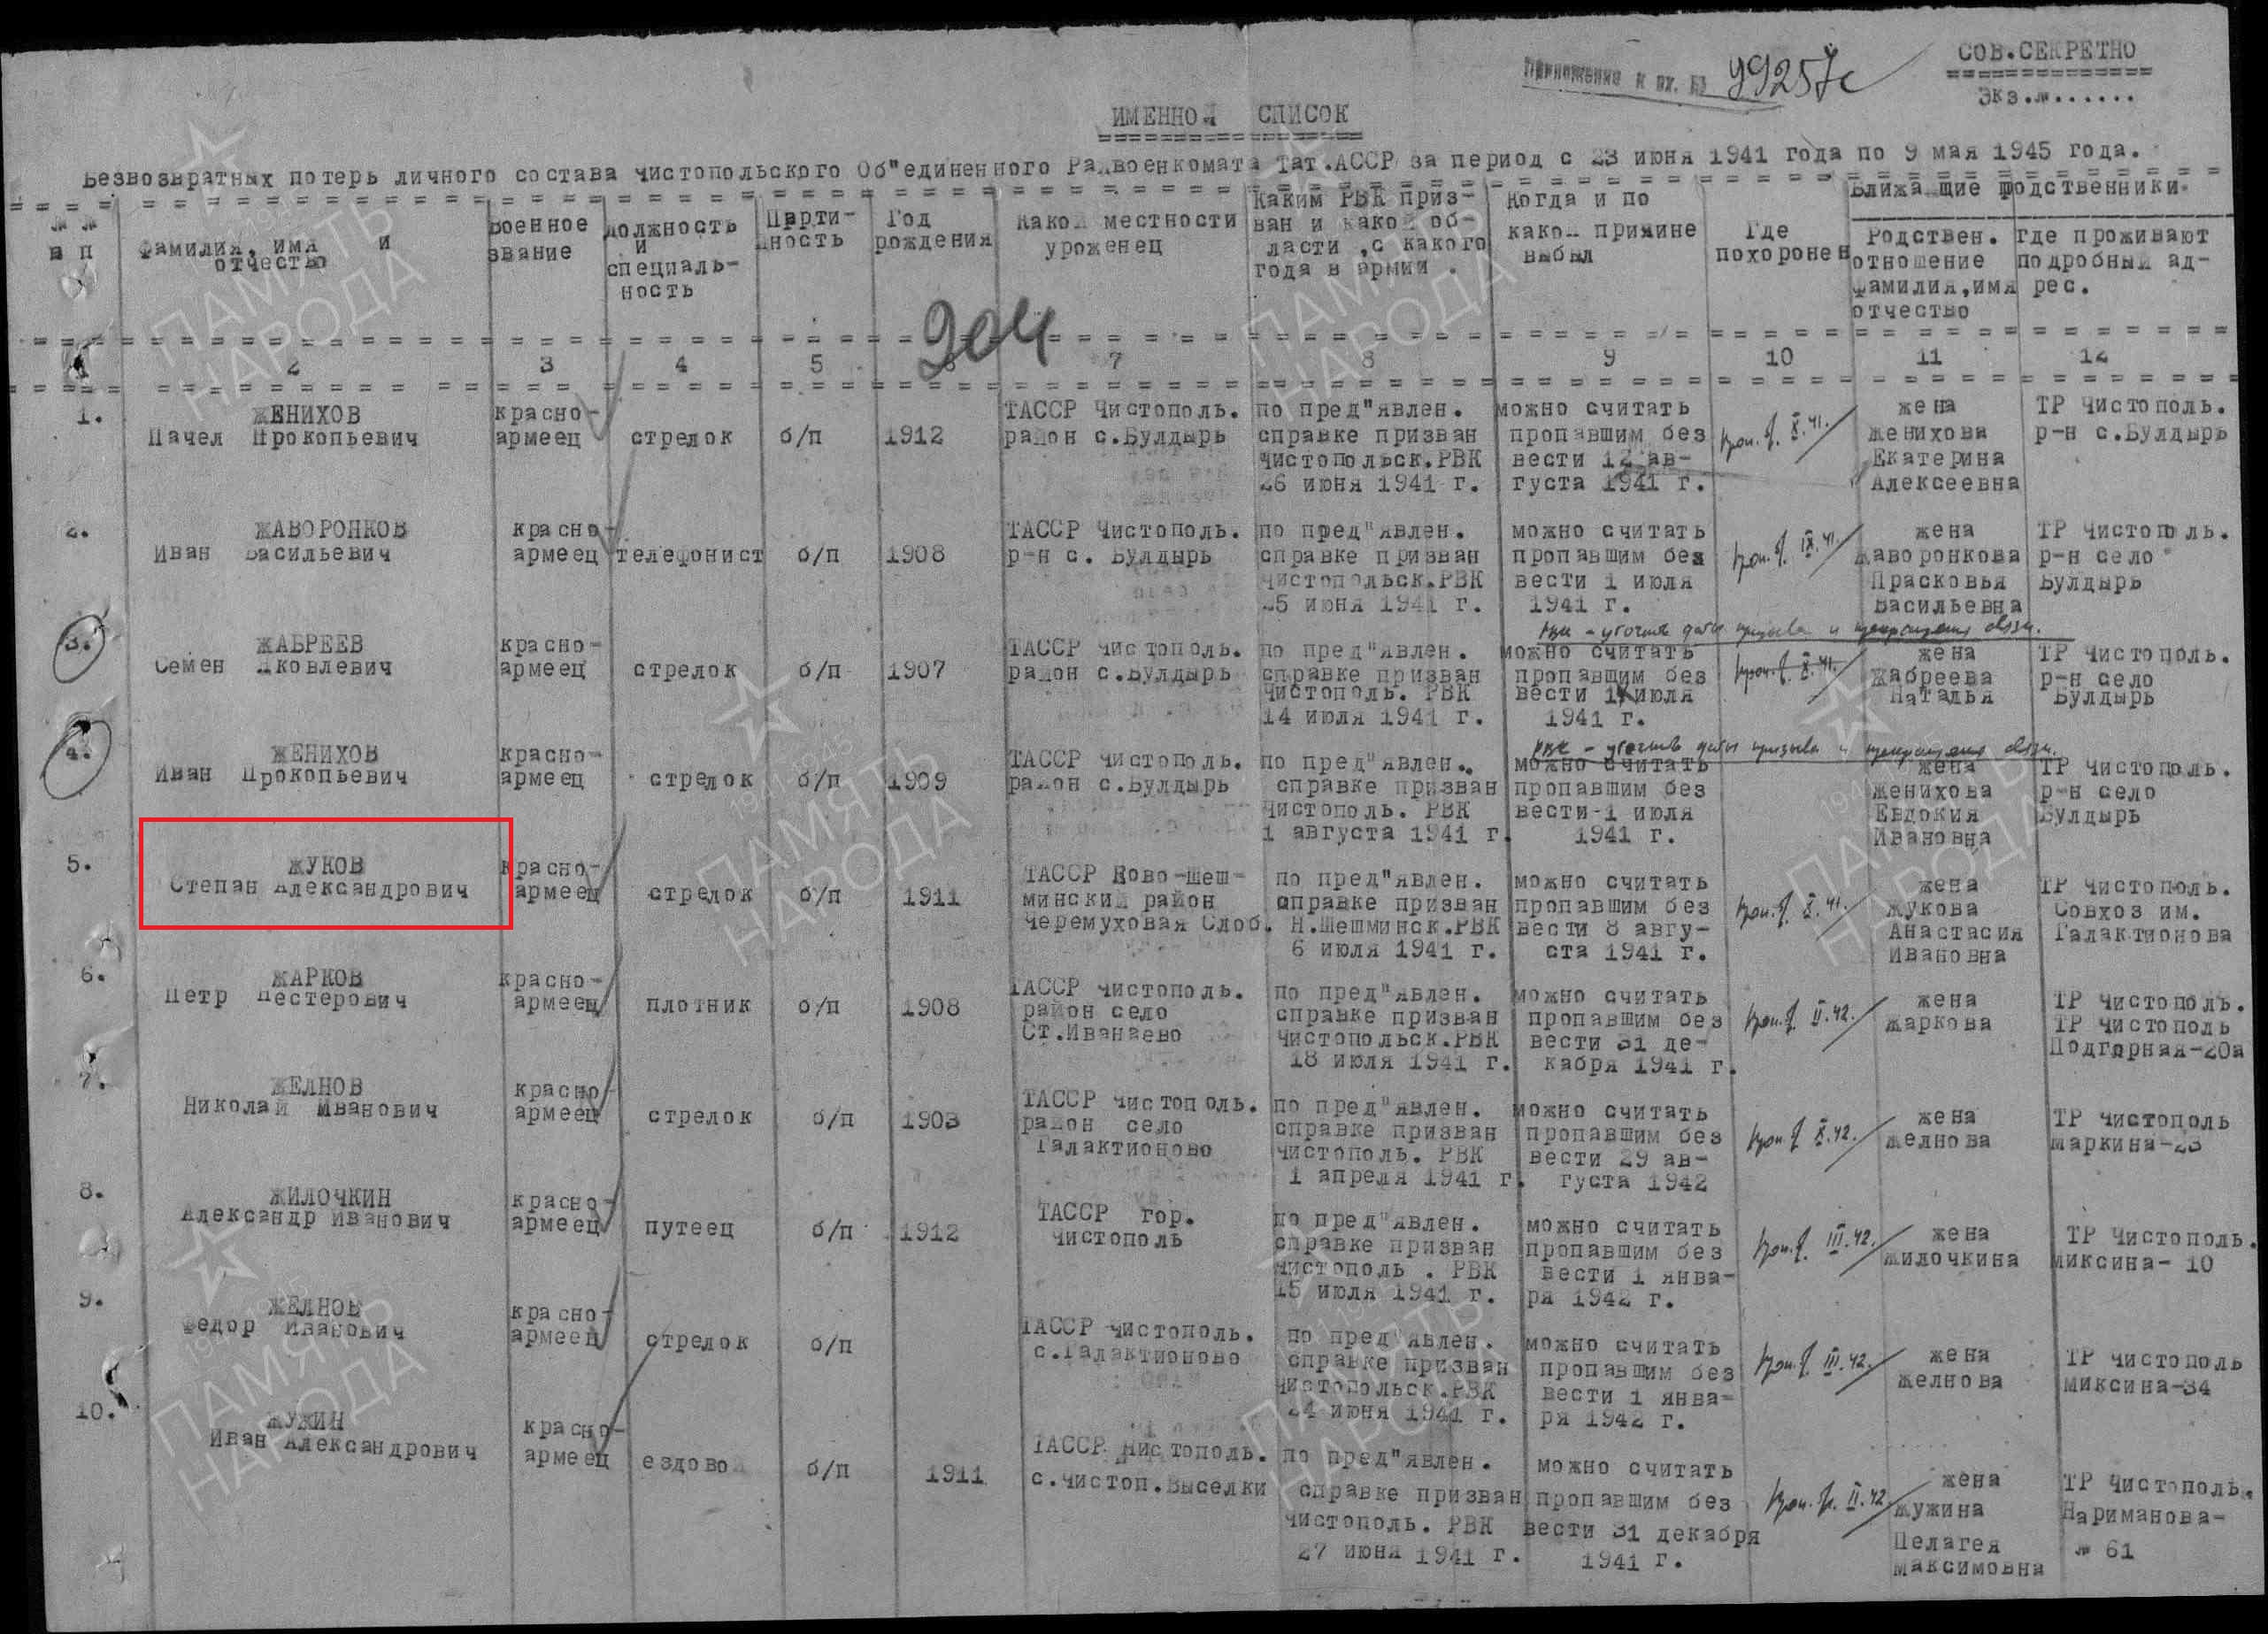 СОВ.СЕКРЕТНО
Экз.№......
Приложение к вх. № 99257с
ИМЕННОЙ СПИСОК
Безвозвратных потерь личного состава Чистопольского Об"единенного Райвоенкомата Тат.АССР за период с 23 июня 1941 года по 9 мая 1945 года.
№ № п п | Фамилия, имя и отчество | Военное звание | Должность и специаль- ность | Парти- йность | Год рождения | Какой местности уроженец | Каким РВК приз- ван и какой об- ласти ,с какого года в армии . | Когда и по какой причине выбыл | Где похоронен | Ближайшие родственники. Родствен. отношение фамилия,имя отчество | Где проживают подробный ад- рес.
904
1 2 3 4 5 6 7 8 9 10 11 12
1. ЖЕНИХОВ красно- ТАССР Чистополь. по пред"явлен. можно считать жена ТР Чистополь.
Павел Прокопьевич армеец стрелок б/п 1912 район с.Булдырь справке призван пропавшим без X.41. Женихова р-н с.Булдырь
Чистопольск.РВК вести 12 ав- Екатерина
26 июня 1941 г. густа 1941 г. Алексеевна
2. ЖАВОРОНКОВ красно- ТАССР Чистополь. по пред"явлен. можно считать жена ТР Чистополь.
Иван Васильевич армеец телефонист б/п 1908 р-н с. Булдырь справке призван пропавшим без IX.41. Жаворонкова р-н село
Чистопольск.РВК вести 1 июля Прасковья Булдырь
25 июня 1941 г. 1941 г. Васильевна
РВК - уточнить даты призыва и прекращения связи.
3. ЖАБРЕЕВ красно- ТАССР Чистополь. по пред"явлен. можно считать жена ТР Чистополь.
Семен Яковлевич армеец стрелок б/п 1907 район с.Булдырь справке призван пропавшим без X.41. Жабреева р-н село
Чистополь. РВК вести июля Наталья Булдырь
14 июля 1941 г. 1941 г.
РВК - уточнить даты призыва и прекращения связи.
4. ЖЕНИХОВ красно- ТАССР Чистополь. по пред"явлен. можно считать жена ТР Чистополь.
Иван Прокопьевич армеец стрелок б/п 1909 район с.Булдырь справке призван пропавшим без Женихова р-н село
Чистополь. РВК вести-1 июля Евдокия Булдырь
1 августа 1941 г. 1941 г. Ивановна
5. ЖУКОВ красно- ТАССР Ново-Шеш- по пред"явлен. можно считать жена ТР Чистополь.
Степан Александрович армеец стрелок б/п 1911 минский район справке призван пропавшим без X.41. Жукова Совхоз им.
Черемуховая Слоб. Н.Шешминск.РВК вести 8 авгу- Анастасия Галактионова
6 июля 1941 г. ста 1941 г. Ивановна
6. ЖАРКОВ красно- ТАССР Чистополь. по пред"явлен. можно считать жена ТР Чистополь.
Петр Нестерович армеец плотник б/п 1908 район село справке призван пропавшим без II.42. Жаркова ТР Чистополь
Ст.Иванаево Чистопольск.РВК вести 31 де- Подгорная-20а
18 июля 1941 г. кабря 1941 г.
7. ЖЕЛНОВ красно- ТАССР Чистополь. по пред"явлен. можно считать жена ТР Чистополь
Николай Иванович армеец стрелок б/п 1903 район село справке призван пропавшим без X.42. Желнова Маркина-23
Галактионово Чистополь. РВК вести 29 ав-
1 апреля 1941 г. густа 1942
8. ЖИЛОЧКИН красно- ТАССР гор. по пред"явлен. можно считать жена ТР Чистополь.
Александр Иванович армеец путеец б/п 1912 Чистополь справке призван пропавшим без III.42. Жилочкина Миксина- 10
Чистополь . РВК вести 1 янва-
15 июля 1941 г. ря 1942 г.
9. ЖЕЛНОВ красно- ТАССР Чистополь. по пред"явлен. можно считать жена ТР Чистополь
Федор Иванович армеец стрелок б/п с.Галактионово справке призван пропавшим без III.42. Желнова Миксина-34
Чистопольск.РВК вести 1 янва-
24 июня 1941 г. ря 1942 г.
10. ЖУЖИН красно- ТАССР Чистополь. по пред"явлен. можно считать жена ТР Чистополь.
Иван Александрович армеец ездовой б/п 1911 с.Чистоп.Выселки справке призван пропавшим без II.42. Жужина Нариманова-
Чистополь. РВК вести 31 декабря Пелагея № 61
27 июня 1941 г. 1941 г. Максимовна
ПАМЯТЬ НАРОДА
1941-1945